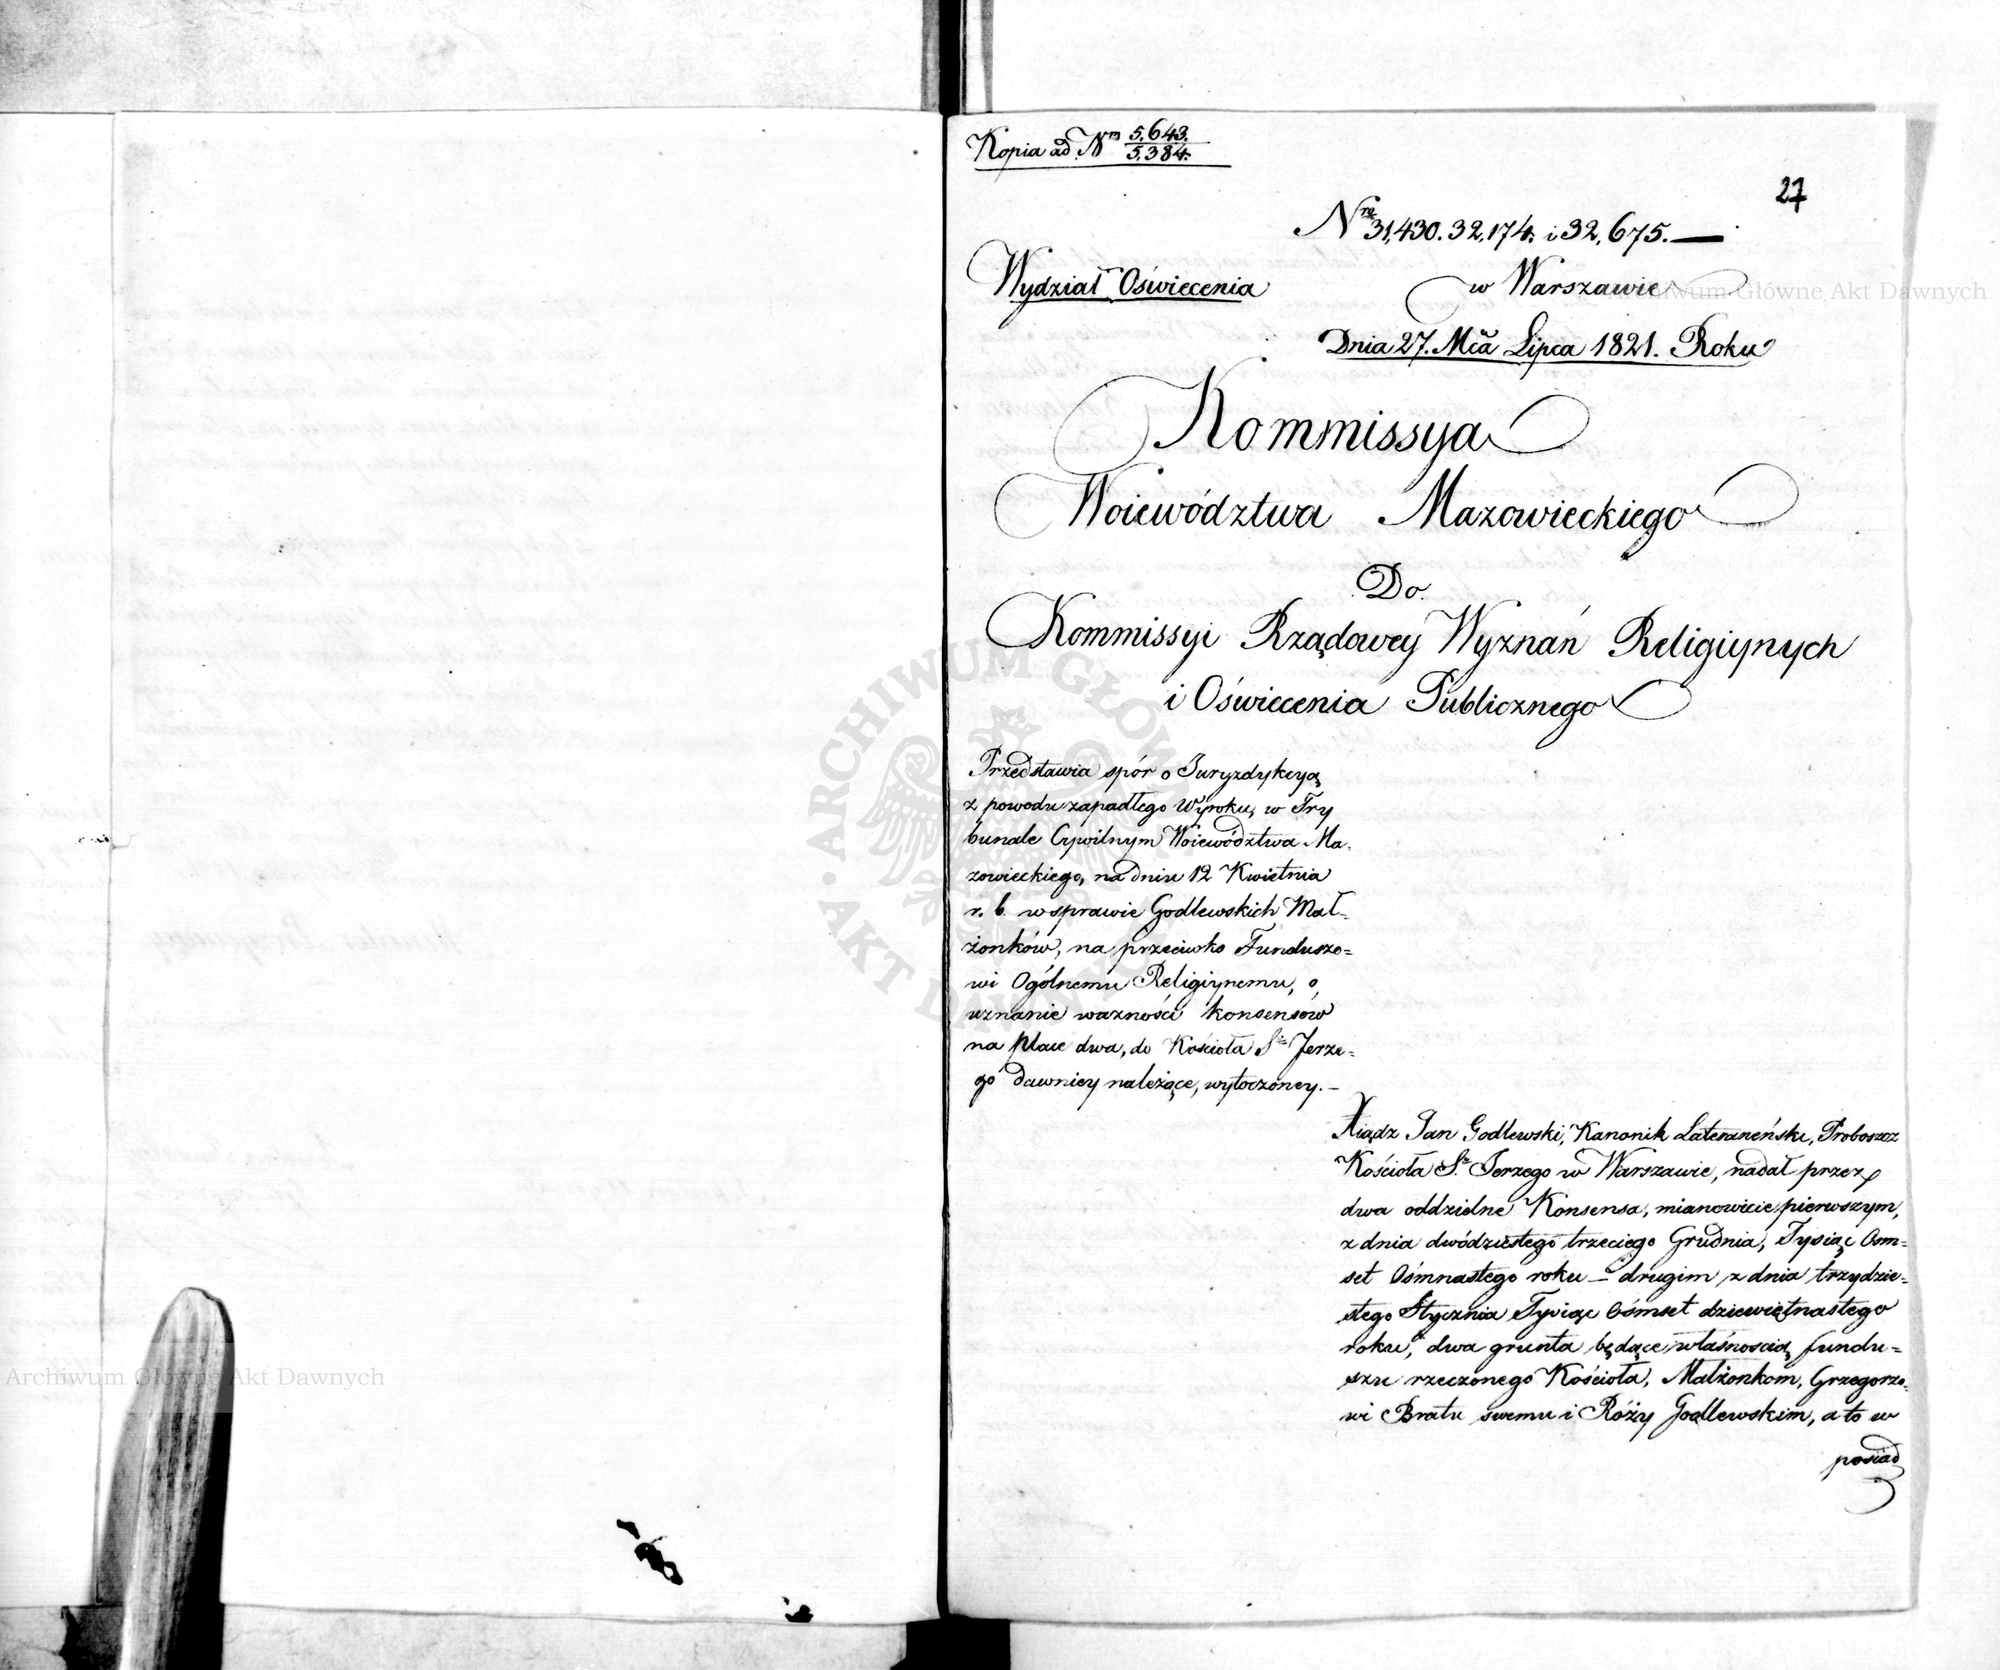 Kopia ad Nm 5,643.
5,384.
27
Nra 31,430. 32,174. i 32,675.—
Wydział Oświecenia
w Warszawie
Dnia 27. Mca Lipca 1821. Roku
Kommissya
Woiewództwa Mazowieckiego
Do.
Kommissyi Rządowey Wyznań Religiynych
i Oświecenia Publicznego
Przedstawia spór o Juryzdykcyą
z powodu zapadłego Wyroku, w Try
bunale Cywilnym Woiewództwa Ma-
zowieckiego, na dniu 12 Kwietnia
r. b. w sprawie Godlewskich Mał-
żonków, na przeciwko Funduszo=
wi Ogólnemu Religiynemu, o,
uznanie ważności konsensów
na place dwa, do Kościoła S. Jerze=
go dawniey należące, wytoczoney.—
Xiądz Jan Godlewski, Kanonik Lateraneński, Proboszcz
Kościoła S. Jerzego w Warszawie, nadał przez
dwa oddzielne Konsensa, mianowicie pierwszym,
z dnia dwódziestego trzeciego Grudnia, Tysiąc Osm=
set Ośmnastego roku — drugim z dnia trzydzie=
stego Stycznia Tysiąc Ośmset dziewiętnastego
roku, dwa grunta będące własnością fundu=
szu rzeczonego Kościoła, Małżonkom, Grzegorzo=
wi Bratu swemu i Róży Godlewskim, a to w
posiad
ARCHIWUM GŁÓWNE AKT DAWNYCH
Archiwum Główne Akt Dawnych
Archiwum Główne Akt Dawnych